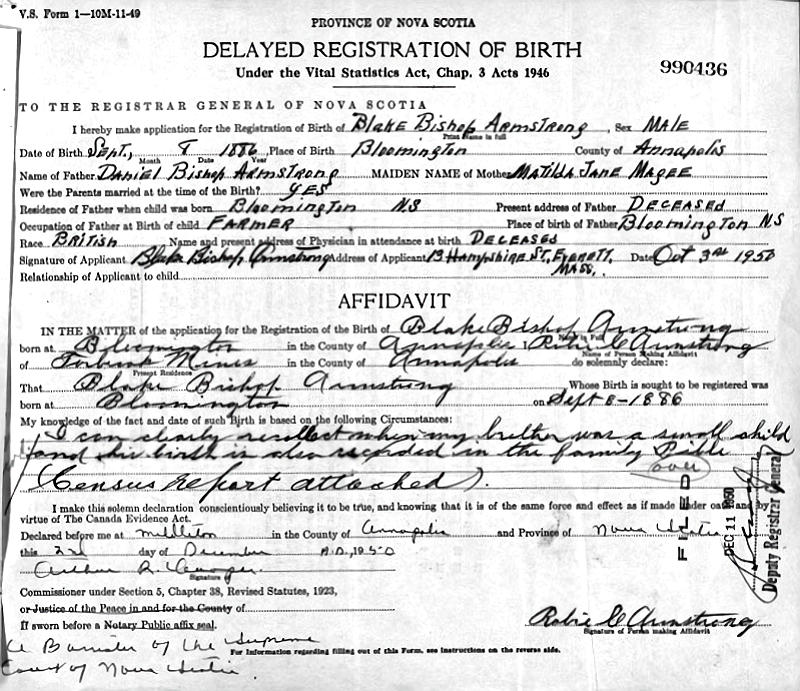 V.S. Form 1—10M-11-49
PROVINCE OF NOVA SCOTIA
DELAYED REGISTRATION OF BIRTH
Under the Vital Statistics Act, Chap. 3 Acts 1946
990436
TO THE REGISTRAR GENERAL OF NOVA SCOTIA
I hereby make application for the Registration of Birth of Blake Bishop Armstrong, Sex MALE
Print Name in full
Date of Birth Sept, 8 1886 Place of Birth Bloomington County of Annapolis
Month Date Year
Name of Father Daniel Bishop Armstrong MAIDEN NAME of Mother Matilda Jane Magee
Were the Parents married at the time of the Birth? YES
Residence of Father when child was born Bloomington NS Present address of Father DECEASED
Occupation of Father at Birth of child FARMER Place of birth of Father Bloomington NS
Race BRITISH Name and present address of Physician in attendance at birth DECEASED
Signature of Applicant Blake Bishop Armstrong Address of Applicant 13 Hampshire St, Everett, Mass. Date Oct 3rd 1950
Relationship of Applicant to child
AFFIDAVIT
IN THE MATTER of the application for the Registration of the Birth of Blake Bishop Armstrong
Name in Full
born at Bloomington in the County of Annapolis, Robie C Armstrong
Name of Person Making Affidavit
of Torbrook Mines in the County of Annapolis do solemnly declare:
Present Residence
That Blake Bishop Armstrong Whose Birth is sought to be registered was
born at Bloomington on Sept 8-1886
My knowledge of the fact and date of such Birth is based on the following Circumstances:
I can clearly recollect when my brother was a small child
and his birth is also recorded in the family Bible
(over)
(Census report attached).
FILED
DEC 11 1950
Deputy Registrar General
I make this solemn declaration conscientiously believing it to be true, and knowing that it is of the same force and effect as if made under oath and by
virtue of The Canada Evidence Act.
Declared before me at Middleton in the County of Annapolis and Province of Nova Scotia
this 22 day of December A.D, 1950
Arthur R.
Signature
Commissioner under Section 5, Chapter 38, Revised Statutes, 1923,
or Justice of the Peace in and for the County of
If sworn before a Notary Public affix seal.
Robie C Armstrong
Signature of Person making Affidavit
A Barrister of the Supreme
Court of Nova Scotia.
For Information regarding filling out of this Form, see instructions on the reverse side.